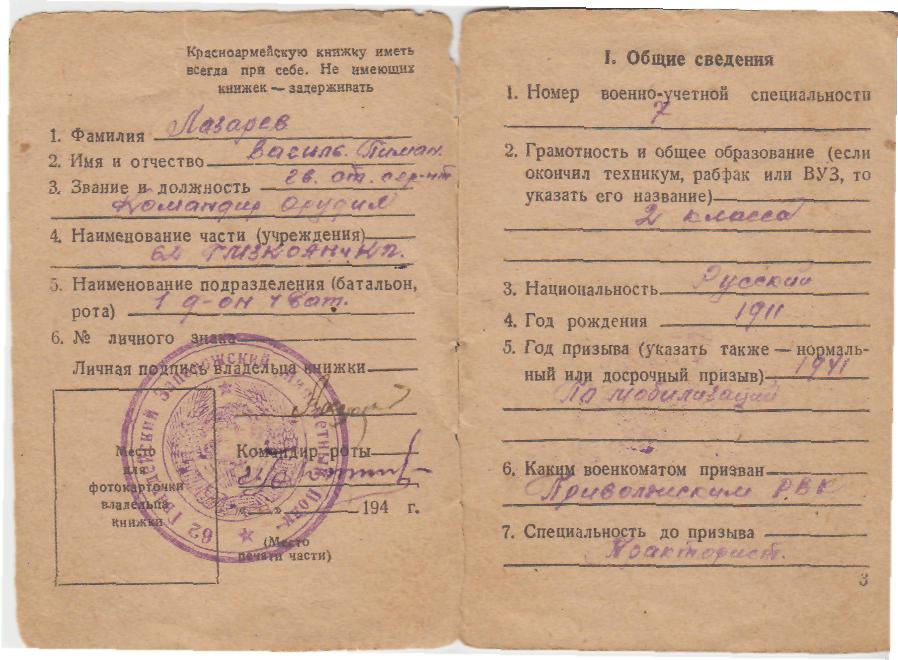 Красноармейскую книжку иметь
всегда при себе. Не имеющих
книжек — задерживать
1. Фамилия Лазарев
2. Имя и отчество Василь. Тиман.
3. Звание и должность гв. ст. сер-нт
Командир орудия
4. Наименование части (учреждения)
62
5. Наименование подразделения (батальон,
рота) 1 д-он 4 бат.
6. № личного знака
Личная подпись владельца книжки
Место
для
фотокарточки
владельца
книжки
Командир роты
„ “ 194 г.
(Место
печати части)
62 Гвардейский Запорожский Полк
I. Общие сведения
1. Номер военно-учетной специальности
7
2. Грамотность и общее образование (если
окончил техникум, рабфак или ВУЗ, то
указать его название)
2 класса
3. Национальность Русский
4. Год рождения 1911
5. Год призыва (указать также — нормаль-
ный или досрочный призыв) 1941
По мобилизации
6. Каким военкоматом призван
Приволжским РВК
7. Специальность до призыва
Тракторист.
3